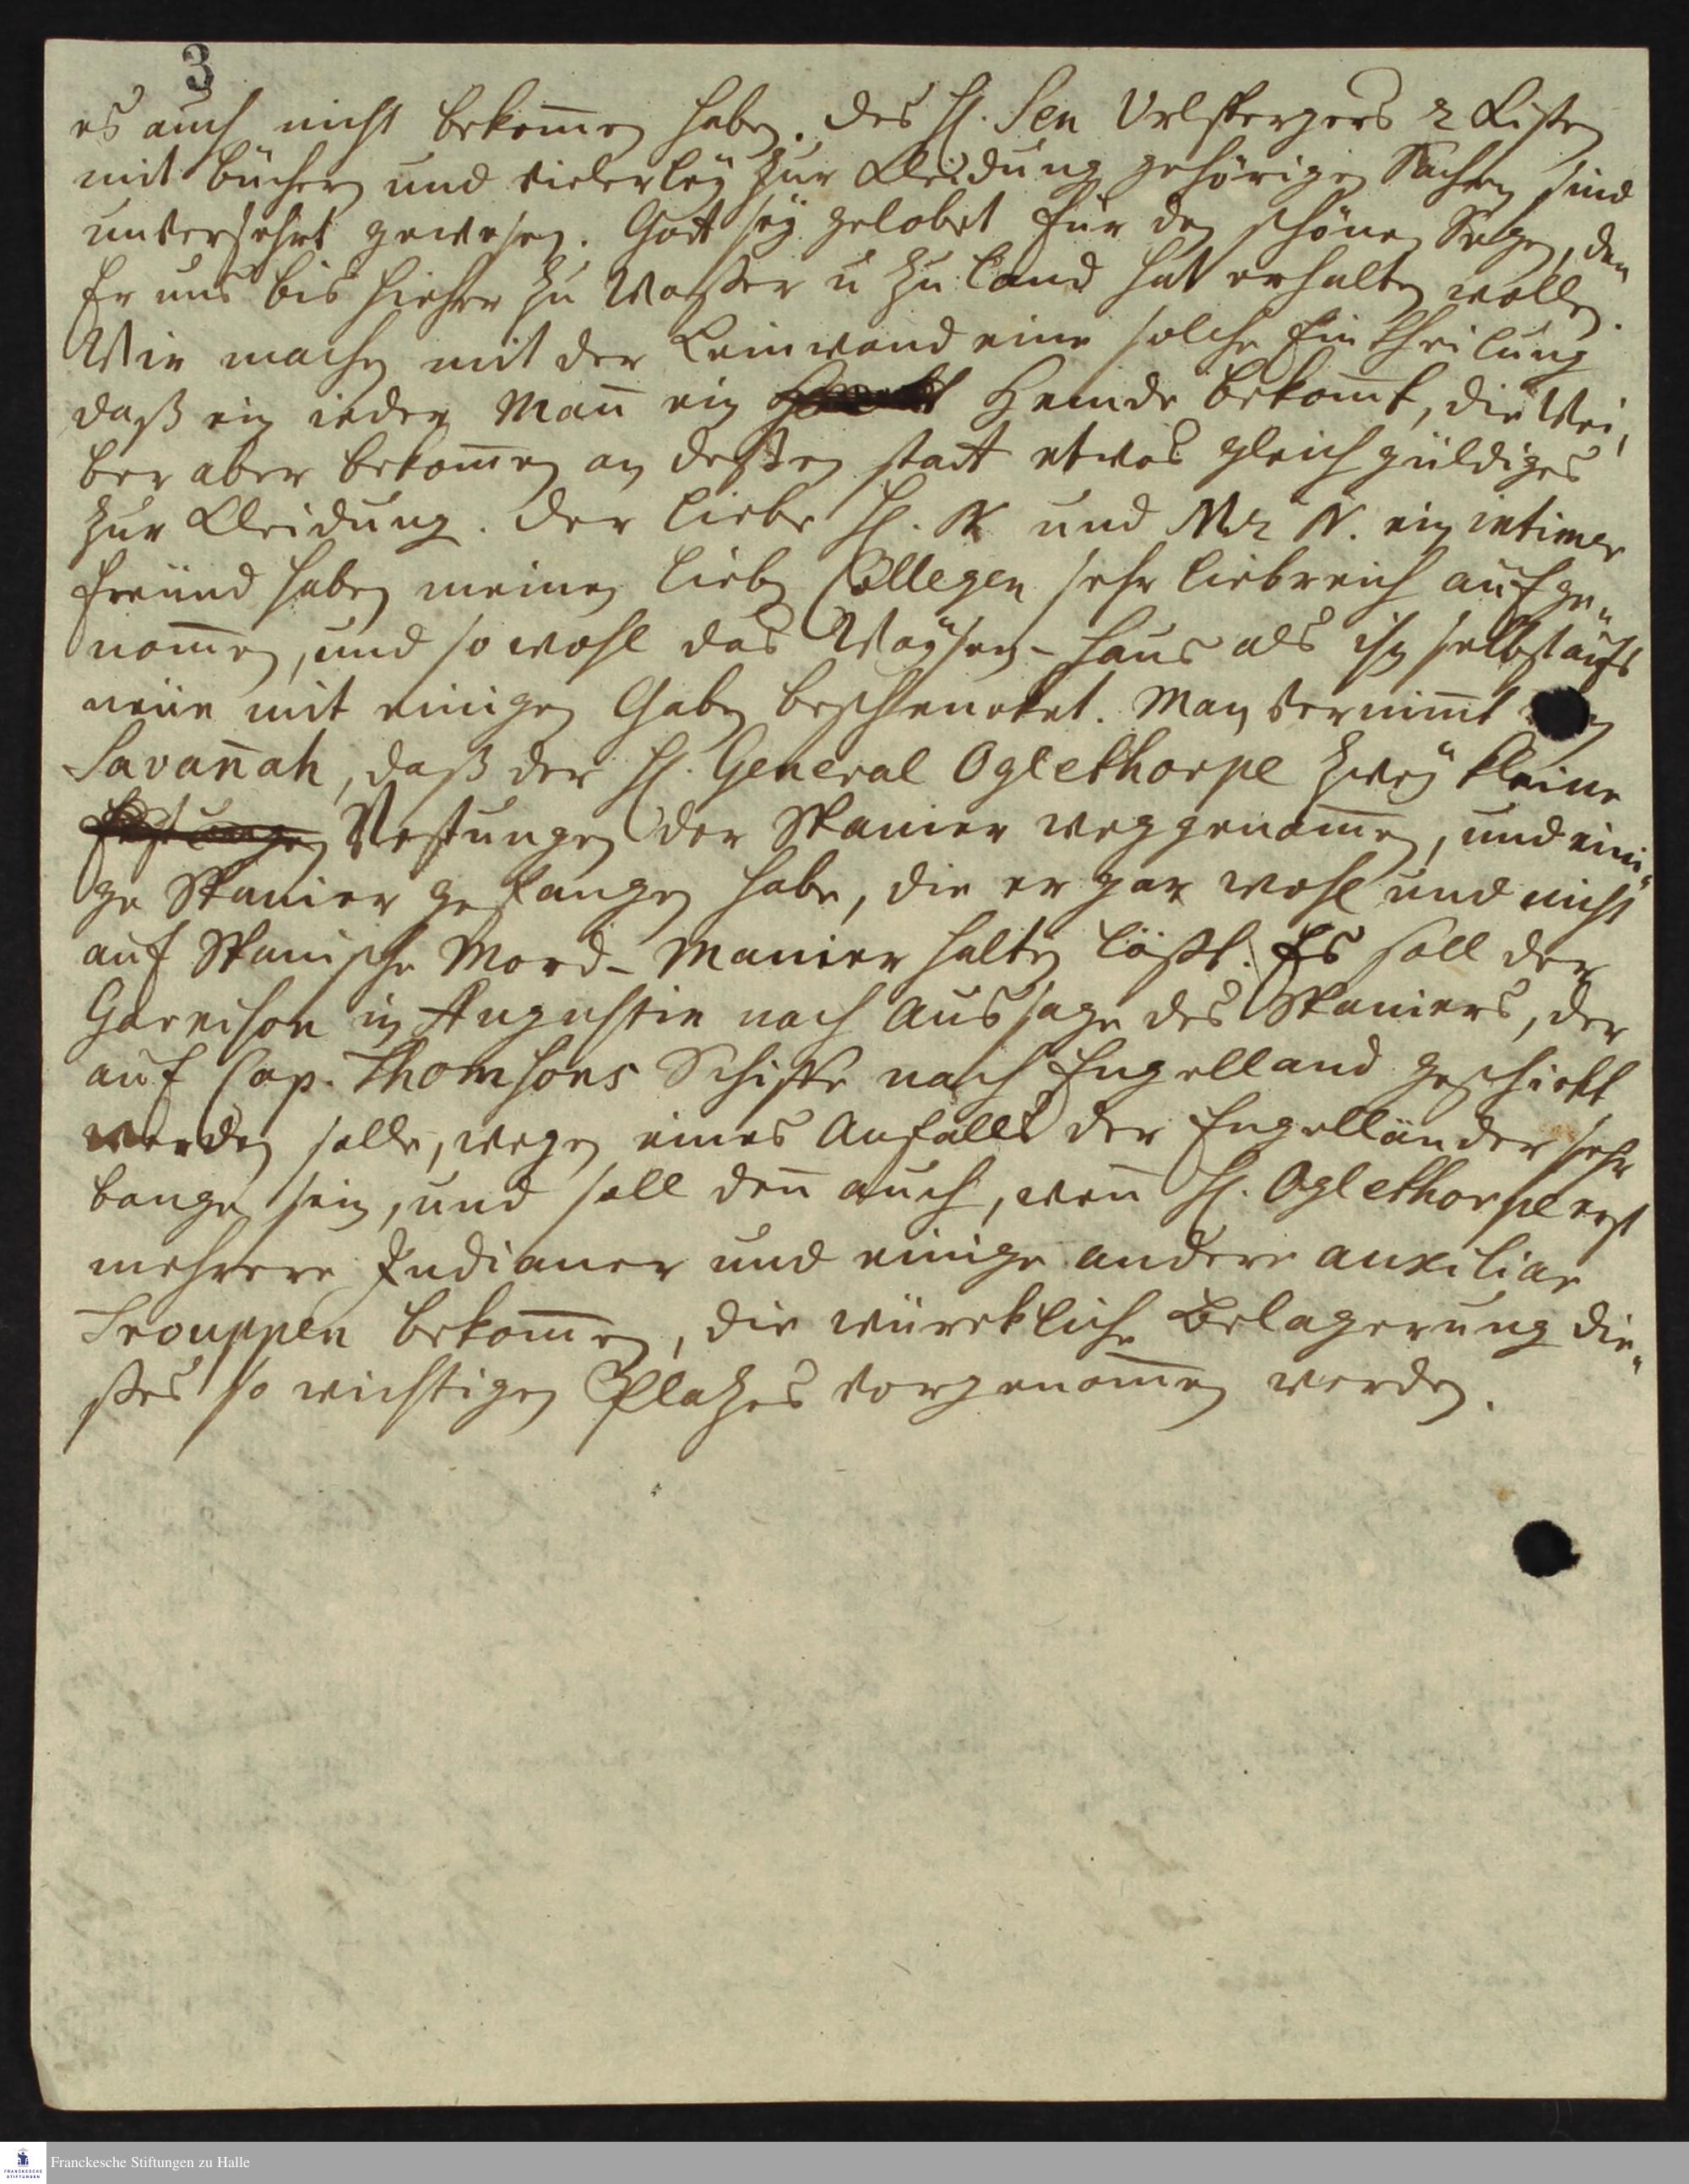 3
es auch nicht bekom̄en haben. Des H. Sen Urlspergers 2 Kisten
mit Bücher und vielerley zur Kleidung gehörigen Sachen sind
unversehrt gewesen. Gott sey gelobet für den schönen Segen, den
Er uns bis hieher zu Waßer u zu Land hat erhalten wollen.
Wir machen mit der Leinwand eine solche Eintheilung
daß ein ieder Man̄ ein Hemde bekom̄t, die Wei,
ber aber bekom̄en an deßen statt etwas gleich gültiges
zur Kleidung. Der liebe H. N und Mr N. ein intimer
Freund haben meinen lieben Collegen sehr liebreich aufge„
nom̄en, und so wohl das Waysen-Haus als ihn selbst aufs
neue mit einigen Gaben beschencket. Man vernim̄t
Savan̄ah, daß der H. General Oglethorpe zwey kleine
Festungen Vestungen der Spanier weggenom̄en, und eini„
ge Spanier gefangen habe, die er gar wohl und nicht
auf Spanische Mord-Manier halten läßt. Es soll der
Garnison in Augustin nach Aussage des Spaniers, der
auf Cap. Thomsons Schiffe nach Engelland geschickt
werden solle, wegen eines Anfalls der Engelländer sehr
bange sein, und soll den̄ auch, wen̄ H. Oglethorpe erst
mehrere Indianer und einige andere auxiliar
Trouppen bekom̄en, die würckliche Belagerung die„
ses so wichtigen Platzes vorgenom̄en werden.
Franckesche Stiftungen zu Halle
FRANCKESCHE
STIFTUNGEN